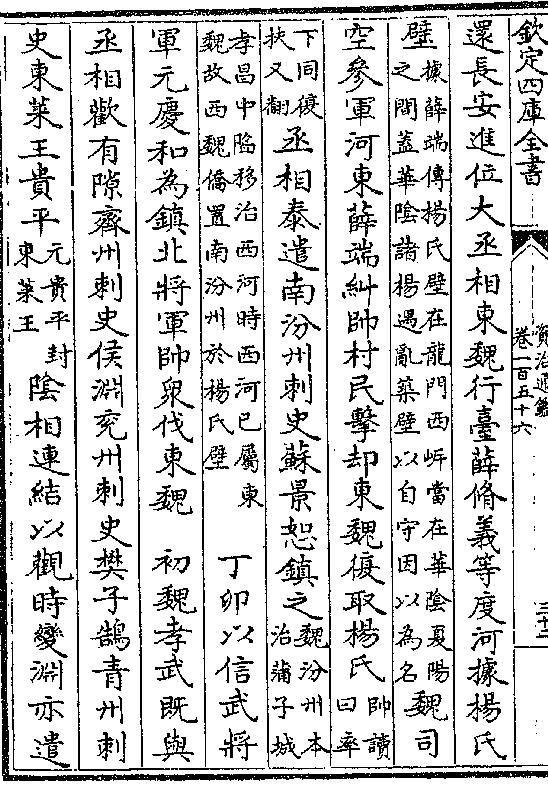 欽定四庫全書
資治通鑑
卷一百五十六
三十二
還長安進位大丞相東魏行臺薛脩義等度河據楊氏
壁據薛端傳楊氏壁在龍門西岍當在華陰夏陽之間蓋華陰諸楊遇亂築壁以自守因以為名魏司
空參軍河東薛端糾帥村民擊却東魏復取楊氏帥讀曰率
下同復扶又翻丞相泰遣南汾州刺史蘇景恕鎮之魏汾州本治蒲子城
孝昌中陷移治西河時西河已屬東魏故西魏僑置南汾州於楊氏壁 丁卯以信武將
軍元慶和為鎮北將軍帥衆伐東魏 初魏孝武既與
丞相歡有隙齊州刺史侯淵兖州刺史樊子鵠青州刺
史東萊王貴平元貴平封東萊王陰相連結以觀時變淵亦遣